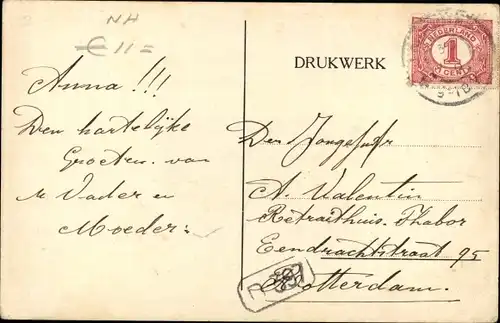 NH
€ 11 =
DRUKWERK
NEDERLAND
1
CENT
Anna!!!
Den hartelijke
Groeten van
Vader en
Moeder.
Den Jongejufr
A. Valentin
Retraithuis. Thabor
Eendrachtstraat 95
Rotterdam.